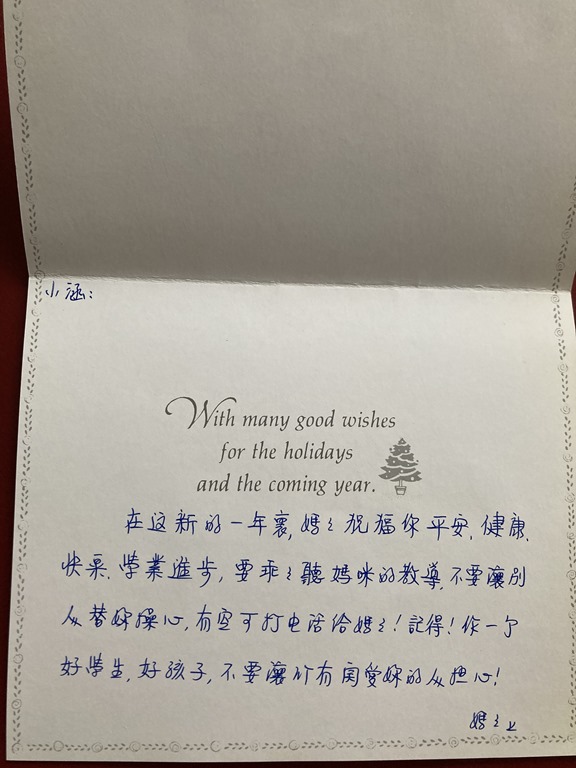 小涵:
With many good wishes
for the holidays
and the coming year.
在这新的一年裏,媽々祝福你平安,健康,
快樂,學業進步,要乖々聽媽咪的教導,不要讓別
人替妳操心,有空可打电话给媽々!記得!作一个
好學生,好孩子,不要讓所有関愛妳的人担心!
媽々上